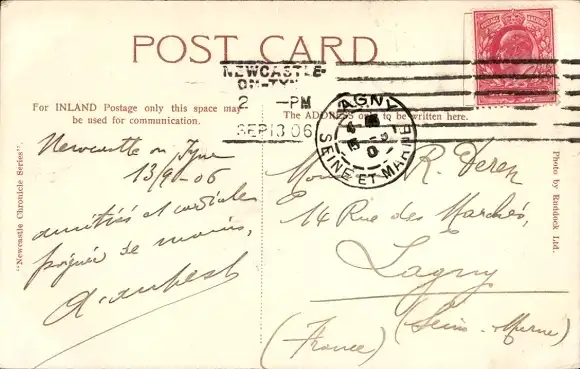 POST CARD
NEWCASTLE-
ON-TYNE
2 -PM
SEP 13 06
LAGNY
SEINE ET MARNE
For INLAND Postage only this space may
be used for communication.
The ADDRESS only to be written here.
Newcastle on Tyne
13/9-06
amitiés et cordiales
poignée de mains,
R. Deren
14 Rue des Marchés,
Lagny
(Seine-Marne)
(France)
"Newcastle Chronicle Series".
Photo by Ruddock Ltd.